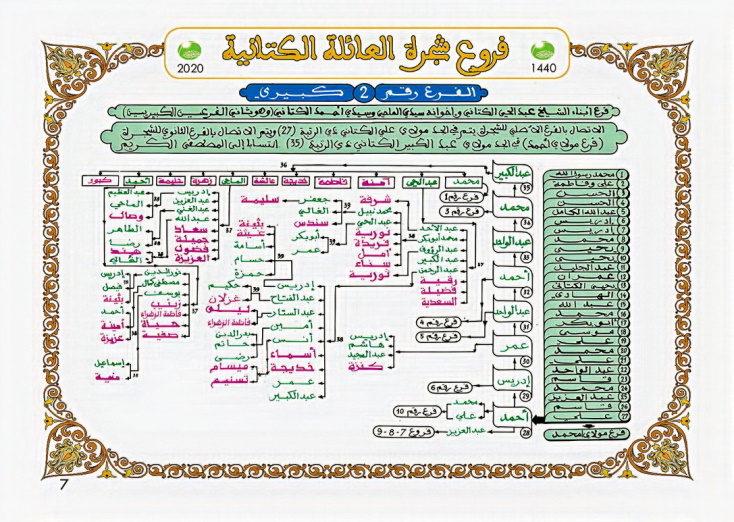 فروع شجرة العائلة الكتانية
1440
2020
الفرع رقم 2 كبيري
فرع أبناء الشيخ عبد الحي الكتاني وإخوانه سيدي الماحي وسيدي أحمد الكتاني (وهو ثاني الفرعين الكبيريين)
الاتصال بالفرع الأصلي للشجرة يتم في الجد مولاي علي الكتاني ذي الرتبة (27) ويتم الاتصال بالفرع الثانوي للشجرة
(فرع مولاي أحمد) في الجد مولاي عبد الكبير الكتاني ذي الرتبة (35) انتسابا إلى المصطفى الكريم
36
محمد
عبد الحي
آمنة
فاطمة
خديجة
عائشة
الماحي
زهرة
حليمة
أحمد
كنبور
عبد الكبير
35
محمد
34
عبد الواحد
33
أحمد
32
عبد الواحد
31
عمر
30
إدريس
29
أحمد
28
فرع رقم 1
فرع رقم 3
فرع رقم 4
فرع رقم 5
فرع رقم 6
محمد
علي
فرع رقم 10
عبد العزيز
فروع 7 - 8 - 9
محمد رسول الله 1
علي وفاطمة 2
الحسين 3
الحسن 4
عبد الله الكامل 5
إدريس 6
إدريس 7
محمد 8
يحيى 9
يحيى 10
عبد الجليل 11
عمران 12
يحيى الكتاني 13
الهادي 14
عبد الله 15
محمد 16
أبو بكر 17
موسى 18
علي 19
محمد 20
علي 21
عبد الواحد 22
قاسم 23
محمد 24
عبد العزيز 25
قاسم 26
علي 27
فرع مولاي محمد
عبد الأحد
محمد أبو بكر
عبد الرؤوف
عبد الكبير
عبد الرحمن
رقية
فضيلة
السعدية
37
شرفة
محمد نبيل
عبد الحي
نورية
فريدة
أمل
سناء
نورية
38
جعفر
الغالي
سندس
39
سليمة
أبو بكر
عمر
39
بثينة
أسامة
حسام
حمزة
37
إدريس
عبد العزيز
عبد الغني
عبد الله
سعاد
جميلة
فضول
العزيزة
38
عبد العظيم
الماحي
وصال
الطاهر
رضا
هند
إدريس
هاشم
عبد المجيد
كنزة
إدريس
عبد الفتاح
عبد الستار
أمين
أنس
أسماء
خديجة
عمر
عبد الكبير
38
39
حكيم
غزلان
ليلى
فاطمة الزهراء
بدر الدين
حاتم
مرضي
ميسام
تسنيم
نور الدين
مصطفى كمال
يوسف
زينب
فاطمة الزهراء
حياة
صفية
37
إدريس
فيصل
بثينة
أحمد
أمينة
عزيزة
38
إسماعيل
7